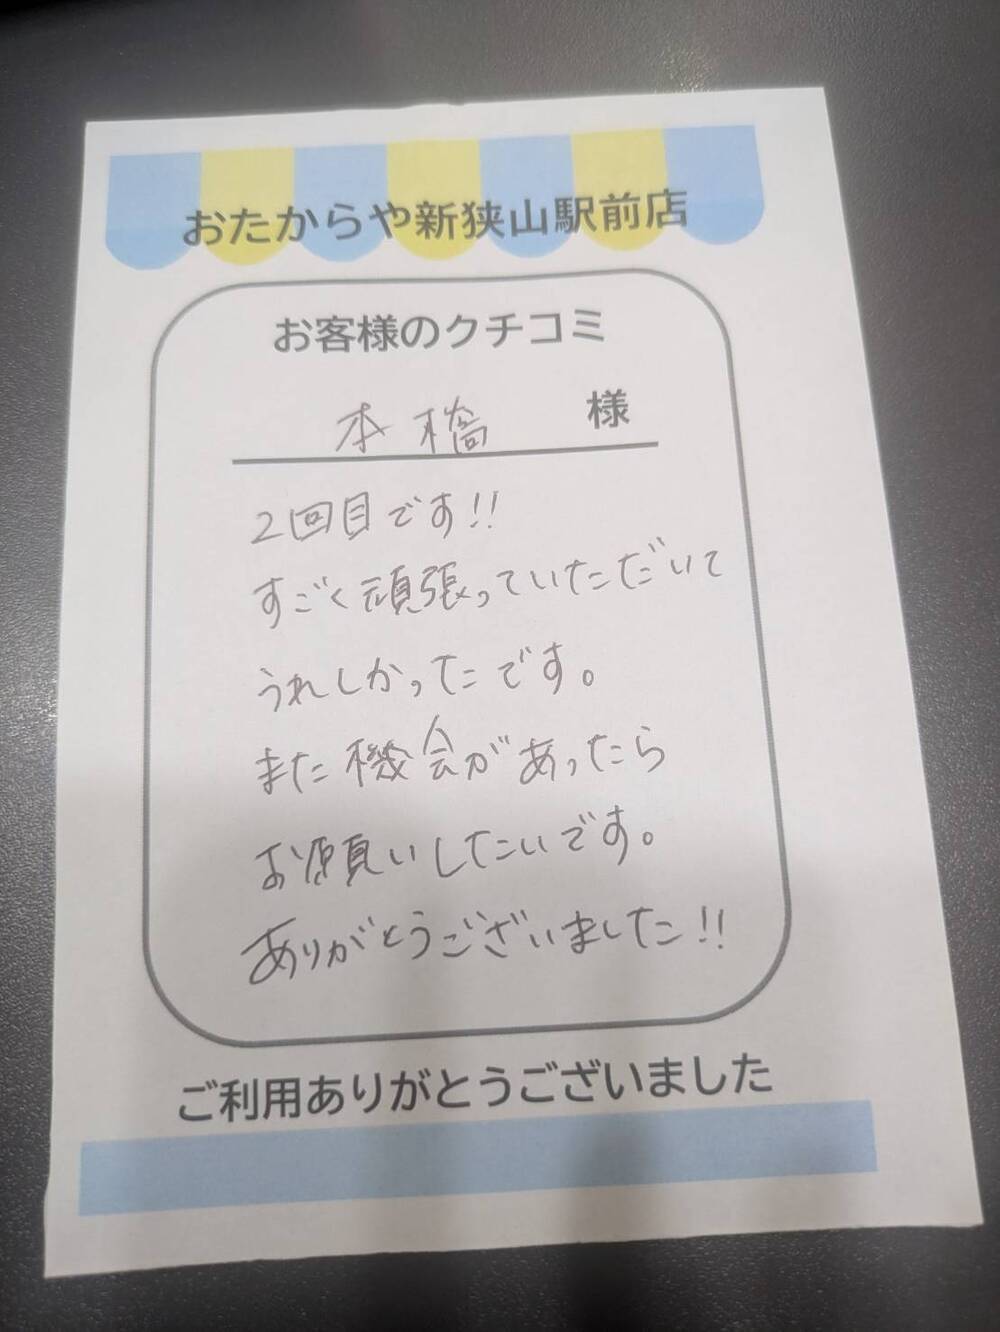 おたからや新狭山駅前店
お客様のクチコミ
本橋 様
2回目です!!
すごく頑張っていただいて
うれしかったです。
また機会があったら
お願いしたいです。
ありがとうございました!!
ご利用ありがとうございました